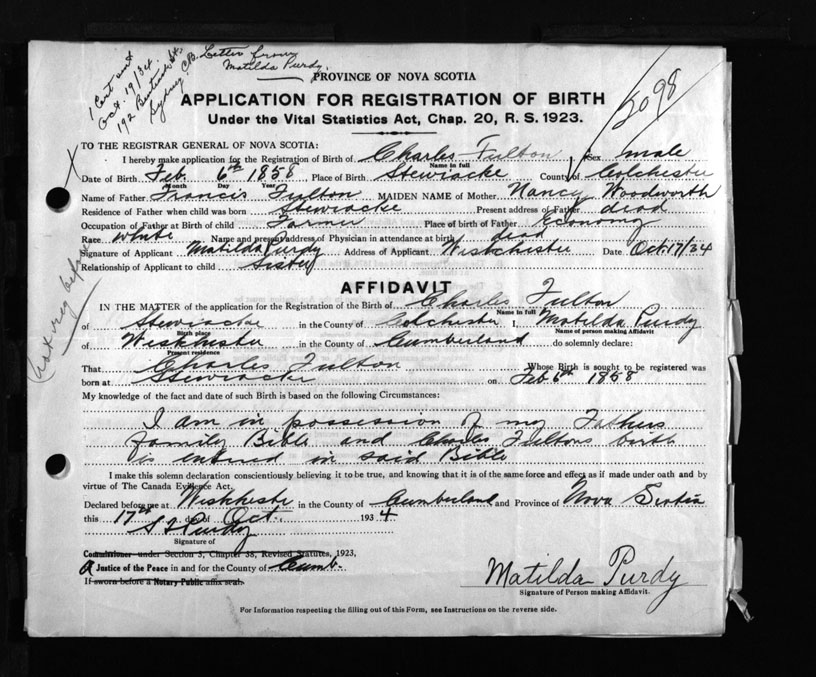 1 Cert sent
Oct. 19/34
192 St.
Sydney C.B.
Letter from
Matilda Purdy.
2098
PROVINCE OF NOVA SCOTIA
APPLICATION FOR REGISTRATION OF BIRTH
Under the Vital Statistics Act, Chap. 20, R. S. 1923.
TO THE REGISTRAR GENERAL OF NOVA SCOTIA:
I hereby make application for the Registration of Birth of Charles Fulton Sex male
Name in full
Date of Birth Feb. 6th 1858 Place of Birth Stewiacke County of Colchester
Month Day Year
Name of Father Francis Fulton MAIDEN NAME of Mother Nancy Woodworth
Residence of Father when child was born Stewiacke Present address of Father dead
Occupation of Father at Birth of child Farmer Place of birth of Father Economy
Race white Name and present address of Physician in attendance at birth dead
Signature of Applicant Matilda Purdy Address of Applicant Westchester Date Oct 17/34
Relationship of Applicant to child Sister
Not reg before
AFFIDAVIT
IN THE MATTER of the application for the Registration of the Birth of Charles Fulton
Name in full
of Stewiacke in the County of Colchester I, Matilda Purdy
Birth place Name of person making Affidavit
of Westchester in the County of Cumberland do solemnly declare:
Present residence
That Charles Fulton Whose Birth is sought to be registered was
born at Stewiacke on Feb 6th 1858
My knowledge of the fact and date of such Birth is based on the following Circumstances:
I am in possession of my Fathers
Family Bible and Charles Fultons birth
is entered in said Bible
I make this solemn declaration conscientiously believing it to be true, and knowing that it is of the same force and effect as if made under oath and by
virtue of The Canada Evidence Act.
Declared before me at Westchester in the County of Cumberland and Province of Nova Scotia
this 17th day of Oct. 1934
S Purdy
Signature of
Commissioner under Section 3, Chapter 38, Revised Statutes, 1923,
A Justice of the Peace in and for the County of Cumb.
If sworn before a Notary Public affix seal.
Matilda Purdy
Signature of Person making Affidavit.
For Information respecting the filling out of this Form, see Instructions on the reverse side.